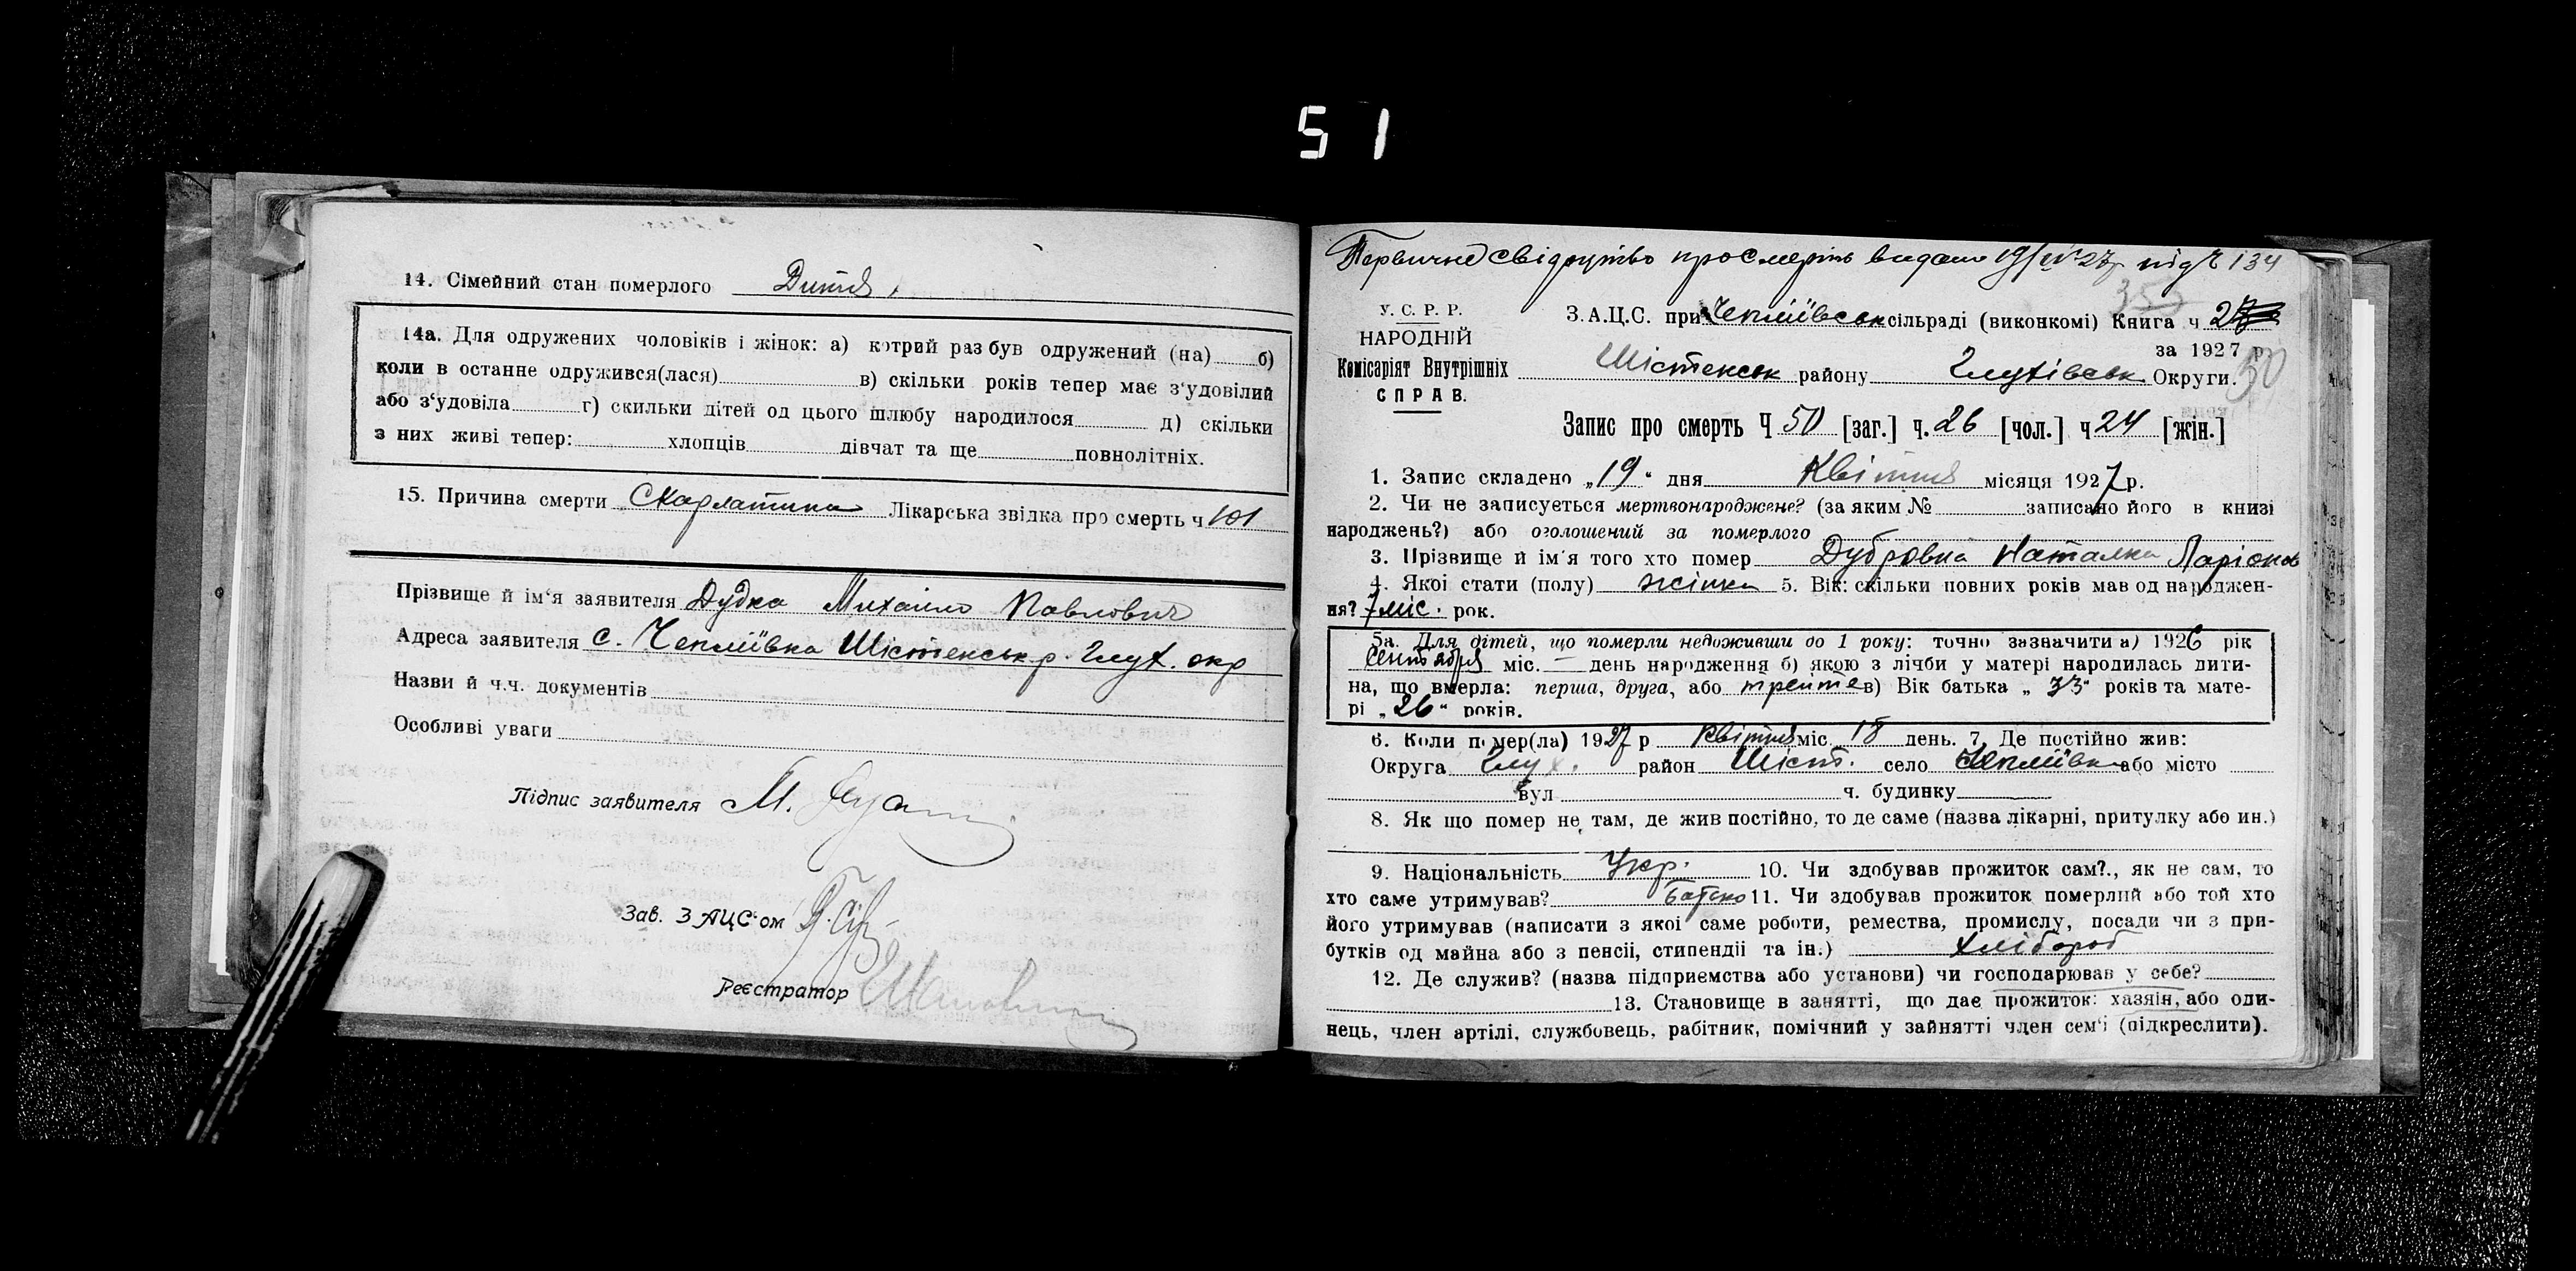 51
14. Сімейний стан померлого Дитя,
14а. Для одружених чоловіків і жінок: а) котрий раз був одружений (на) б)
коли в останне одружився(лася) в) скільки років тепер має з'удовілий
або з'удовіла г) скильки дітей од цього шлюбу народилося д) скільки
з них живі тепер: хлопців дівчат та ще повнолітніх.
15. Причина смерти Скарлатина Лікарська звідка про смерть ч 101
Прізвище й ім'я заявителя Дудка Михайло Павлович
Адреса заявителя с. Чепліївка Шістенськ р. Глух. окр
Назви й ч.ч. документів
Особливі уваги
Підпис заявителя М.
Зав. ЗАЦС'ом
Реєстратор
Первичне свідоцтво про смерть видано 19/IV 27р. під Ч 134
У. С. Р. Р.
НАРОДНІЙ
Комісаріят Внутрішніх
СПРАВ.
З.А.Ц.С. при Чепліївськ сільраді (виконкомі) Книга ч 2
за 1927 р.
Шістенськ району Глухівськ Округи. 50
Запис про смерть Ч 50 [заг.] ч. 26 [чол.] ч 24 [жін.]
1. Запис складено „19" дня Квітня місяця 1927 р.
2. Чи не записуеться мертвонароджене? (за яким № записано його в книзі
народжень?) або оголошений за померлого
3. Прізвище й ім'я того хто помер Дубровна Наталка Ларіонов
4. Якої стати (полу) жінка 5. Вік: скільки повних років мав од народжен-
ня? 7 міс. рок.
5а. Для дітей, що померли недоживши до 1 року: точно зазначити а) 1926 рік
Сентября міс. — день народження б) якою з лічби у матері народилась дити-
на, що вмерла: перша, друга, або третє в) Вік батька „33" років та мате-
рі „26" років.
6. Коли помер(ла) 1927 р Квітня міс. 18 день. 7. Де постійно жив:
Округа Глух. район Шіст. село Чепліївка або місто
вул ч. будинку
8. Як що помер не там, де жив постійно, то де саме (назва лікарні, притулку або ин.)
9. Національність Укр. 10. Чи здобував прожиток сам?., як не сам, то
хто саме утримував? Батько 11. Чи здобував прожиток померлий або той хто
його утримував (написати з якої саме роботи, ремества, промислу, посади чи з при-
бутків од майна або з пенсії, стипендії та ін.) хлібороб
12. Де служив? (назва підприемства або установи) чи господарював у себе?
13. Становище в занятті, що дає прожиток: хазяін, або оди-
нець, член артілі, службовець, рабітник, помічний у зайнятті член сем'ї (підкреслити).